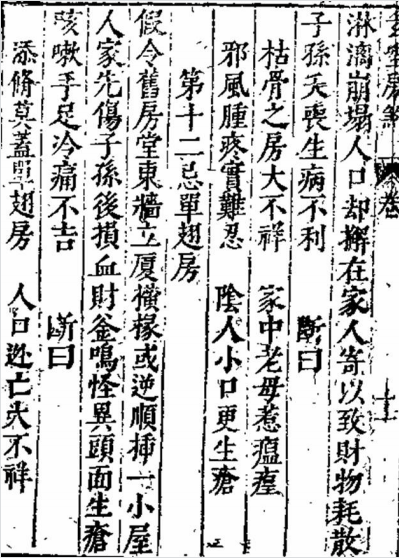 卷 十一
淋漓崩塌人口却擀在家人寄以致財物耗散
子孫夭喪生病不利 斷曰
枯骨之房大不祥 家中老母惹瘟㾮
邪風腫疼實難忍 陰人小口更生瘡
第十二忌單翅房
假令舊房堂東牆立厦橫椽或逆順插一小屋
人家先傷子孫後損血財釜鳴怪異頭面生瘡
咳嗽手足冷痛不吉 斷曰
添脩莫蓋單翅房 人口逃亡大不祥